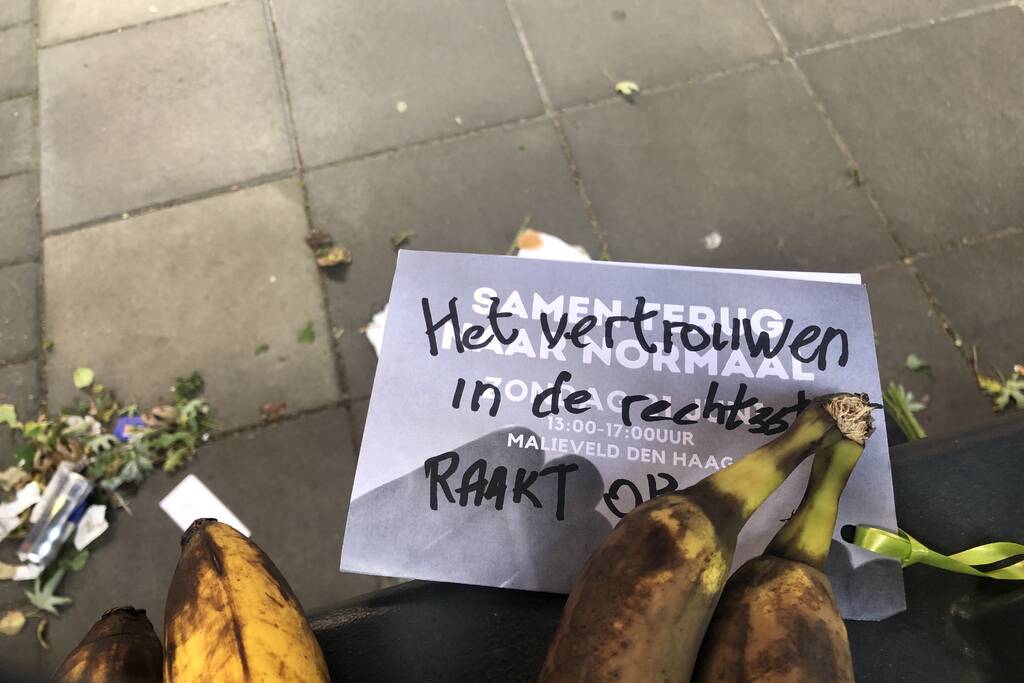 SAMEN TERUG
NAAR NORMAAL
ZONDAG 21 JUNI
13:00-17:00UUR
MALIEVELD DEN HAAG
Het vertrouwen
in de
RAAKT OP